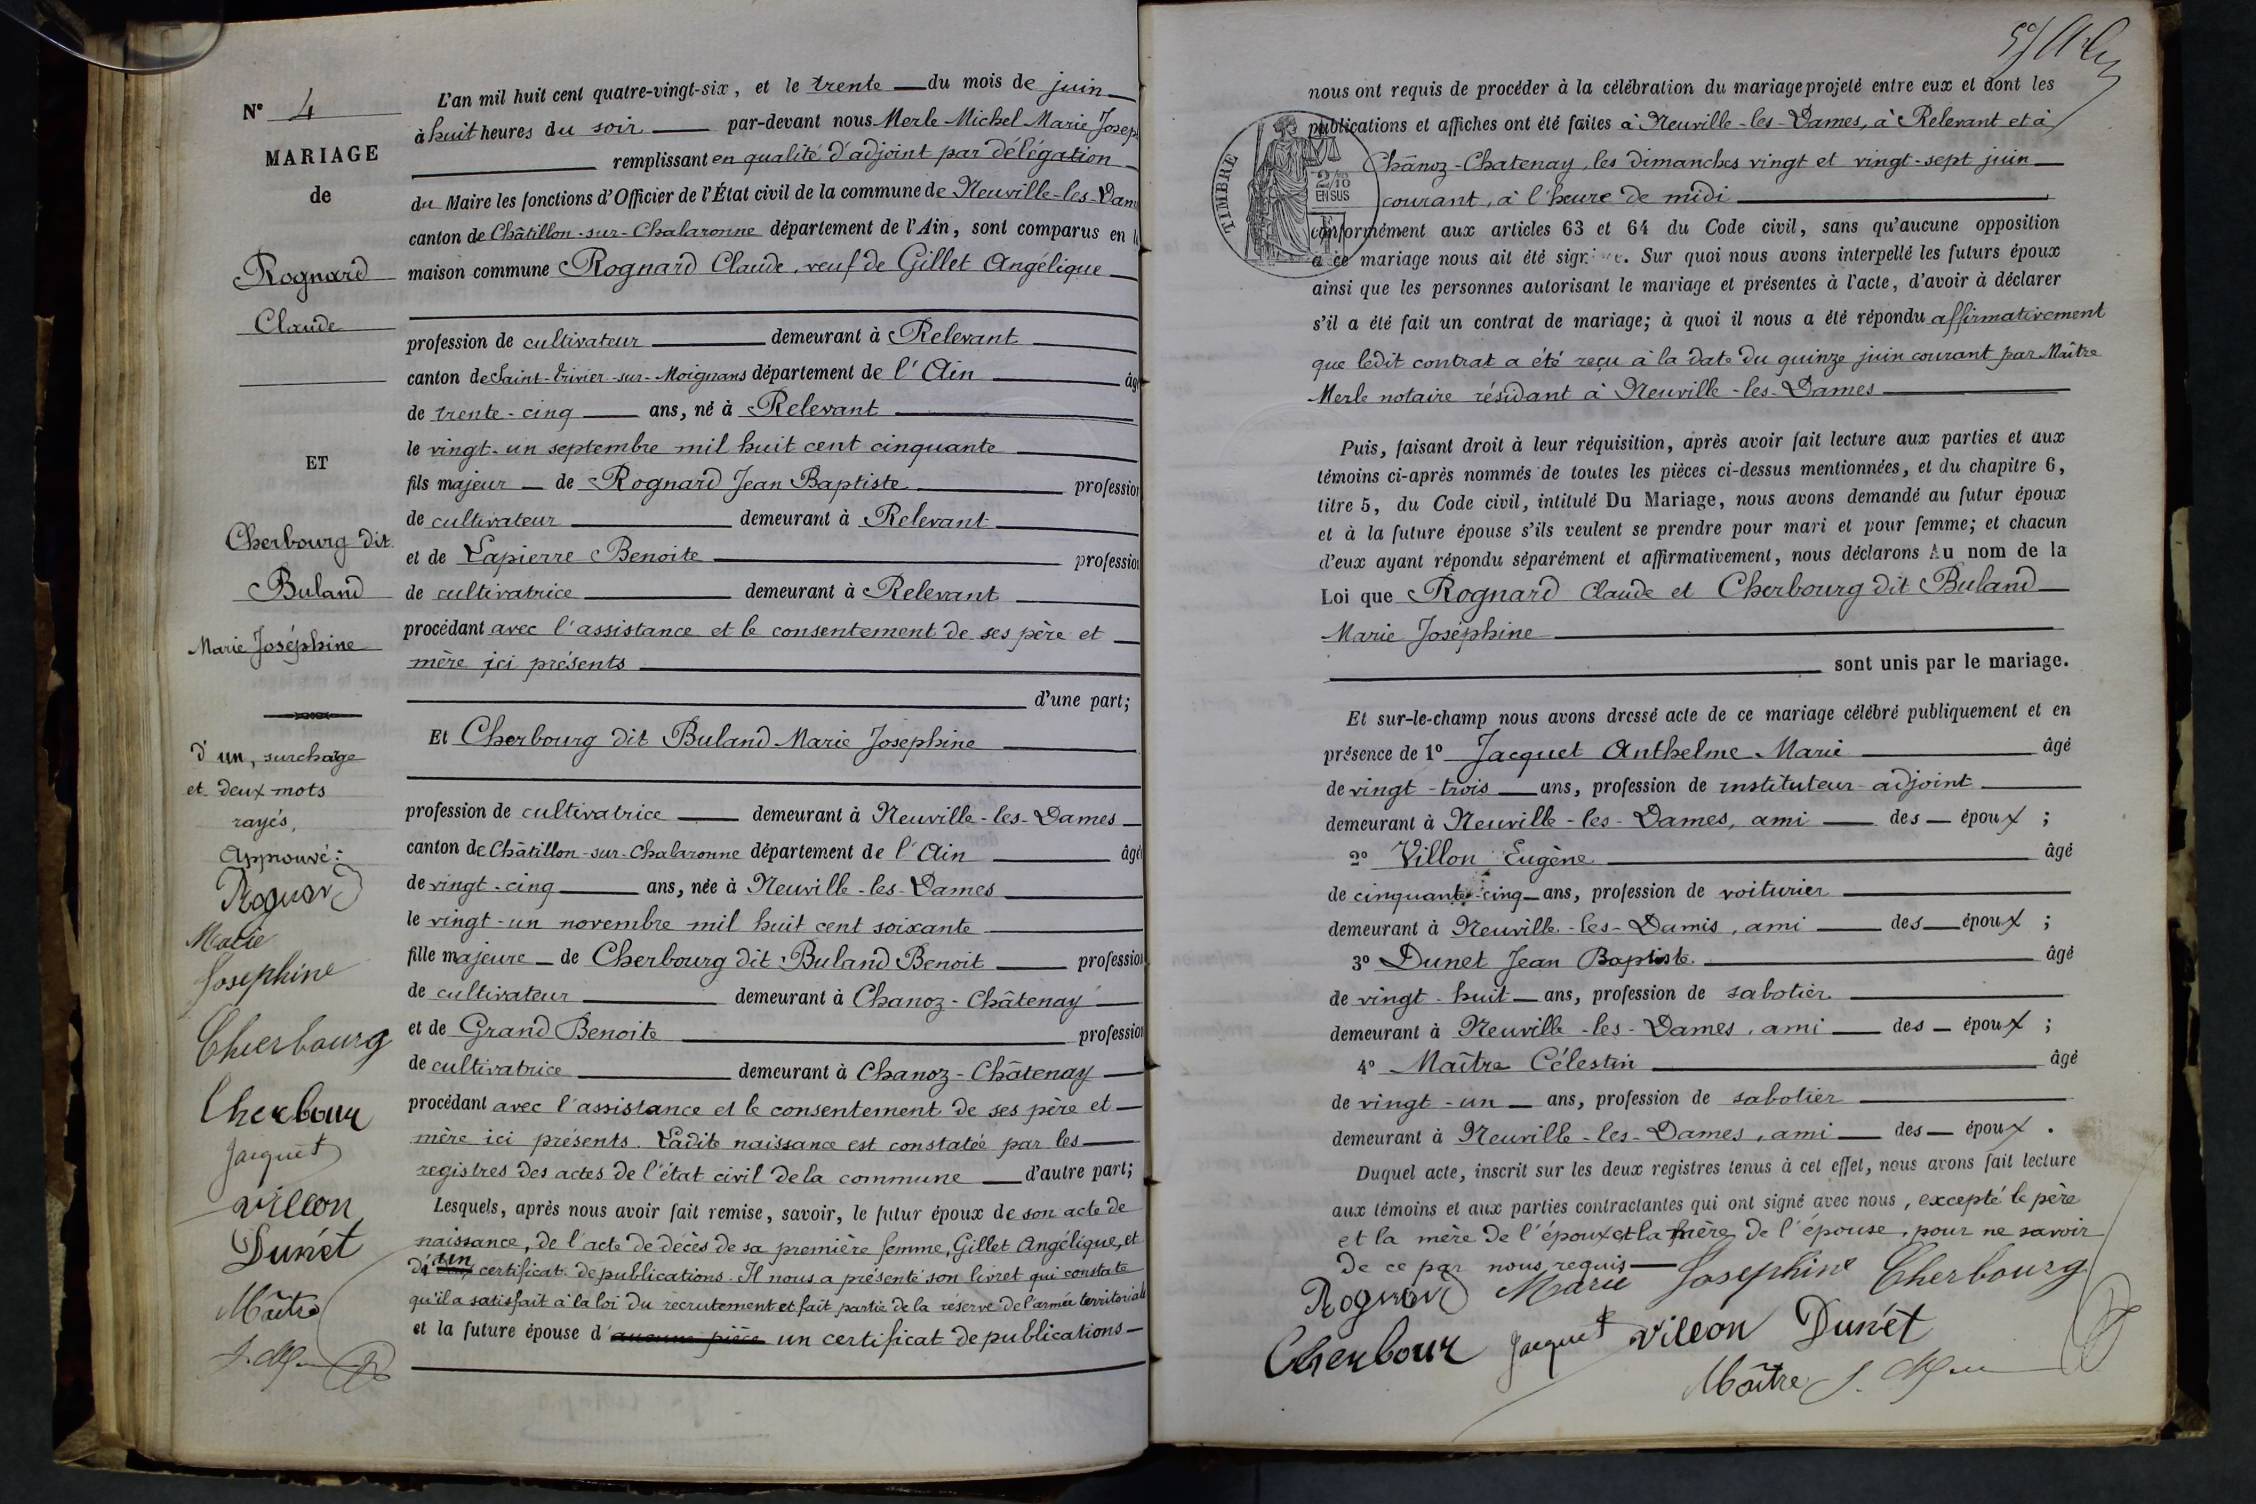 N° 4
MARIAGE
de
Rognard
Claude
ET
Cherbourg dit
Buland
Marie Joséphine
d'un, surcharge
et deux mots
rayés,
Approuvé :
Rognard
Marie
Josephine
Cherbourg
Cherbour
Jacquet
Villon
Dunét
Maître
L'an mil huit cent quatre-vingt-six, et le trente du mois de juin
à huit heures du soir par-devant nous Merle Michel Marie Joseph
remplissant en qualité d'adjoint par délégation
du Maire les fonctions d'Officier de l'État civil de la commune de Neuville-les-Dam
canton de Châtillon-sur-Chalaronne département de l'Ain, sont comparus en l
maison commune Rognard Claude, veuf de Gillet Angélique
profession de cultivateur demeurant à Relevant
canton de Saint-Trivier-sur-Moignans département de l'Ain âg
de trente-cinq ans, né à Relevant
le vingt-un septembre mil huit cent cinquante
fils majeur de Rognard Jean Baptiste profession
de cultivateur demeurant à Relevant
et de Lapierre Benoite profession
de cultivatrice demeurant à Relevant
procédant avec l'assistance et le consentement de ses père et
mère ici présents
d'une part;
Et Cherbourg dit Buland Marie Josephine
profession de cultivatrice demeurant à Neuville-les-Dames
canton de Châtillon-sur-Chalaronne département de l'Ain âgé
de vingt-cinq ans, née à Neuville-les-Dames
le vingt-un novembre mil huit cent soixante
fille majeure de Cherbourg dit Buland Benoit profession
de cultivateur demeurant à Chanoz-Châtenay
et de Grand Benoite profession
de cultivatrice demeurant à Chanoz-Châtenay
procédant avec l'assistance et le consentement de ses père et
mère ici présents. Ladite naissance est constatée par les
registres des actes de l'état civil de la commune d'autre part;
Lesquels, après nous avoir fait remise, savoir, le futur époux de son acte de
naissance, de l'acte de décès de sa première femme, Gillet Angélique, et
d'un certificat de publications. Il nous a présenté son livret qui constate
qu'il a satisfait à la loi du recrutement et fait partie de la réserve de l'armée territoriale
et la future épouse d'aucune pièce un certificat de publications
nous ont requis de procéder à la célébration du mariage projeté entre eux et dont les
publications et affiches ont été faites à Neuville-les-Dames, à Relevant et à
Chânoz-Chatenay, les dimanches vingt et vingt-sept juin
courant, à l'heure de midi
TIMBRE
2/10
EN SUS
conformément aux articles 63 et 64 du Code civil, sans qu'aucune opposition
à ce mariage nous ait été sign. Sur quoi nous avons interpellé les futurs époux
ainsi que les personnes autorisant le mariage et présentes à l'acte, d'avoir à déclarer
s'il a été fait un contrat de mariage; à quoi il nous a été répondu affirmativement
que ledit contrat a été reçu à la date du quinze juin courant par Maître
Merle notaire résidant à Neuville-les-Dames
Puis, faisant droit à leur réquisition, après avoir fait lecture aux parties et aux
témoins ci-après nommés de toutes les pièces ci-dessus mentionnées, et du chapitre 6,
titre 5, du Code civil, intitulé Du Mariage, nous avons demandé au futur époux
et à la future épouse s'ils veulent se prendre pour mari et pour femme; et chacun
d'eux ayant répondu séparément et affirmativement, nous déclarons Au nom de la
Loi que Rognard Claude et Cherbourg dit Buland
Marie Joséphine
sont unis par le mariage.
Et sur-le-champ nous avons dressé acte de ce mariage célébré publiquement et en
présence de 1° Jacquet Anthelme Marie âgé
de vingt-trois ans, profession de instituteur-adjoint
demeurant à Neuville-les-Dames, ami des époux ;
2° Villon Eugène âgé
de cinquante-cinq ans, profession de voiturier
demeurant à Neuville-les-Damis, ami des époux ;
3° Dunet Jean Baptiste âgé
de vingt-huit ans, profession de sabotier
demeurant à Neuville-les-Dames, ami des époux ;
4° Maître Célestin âgé
de vingt-un ans, profession de sabotier
demeurant à Neuville-les-Dames, ami des époux .
Duquel acte, inscrit sur les deux registres tenus à cet effet, nous avons fait lecture
aux témoins et aux parties contractantes qui ont signé avec nous, excepté le père
et la mère de l'époux et la mère de l'épouse, pour ne savoir
de ce par nous requis
Rognard Marie Josephine Cherbourg
Cherbour Jacquet Villon Dunét
Maître